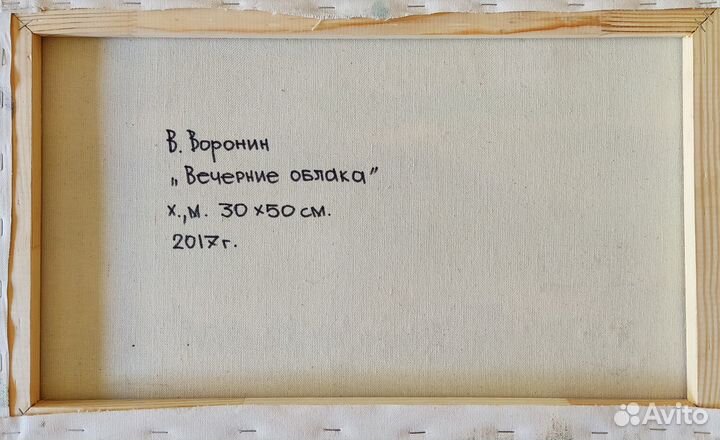 В. Воронин
„Вечерние облака”
х.,м. 30х50 см.
2017г.
Avito